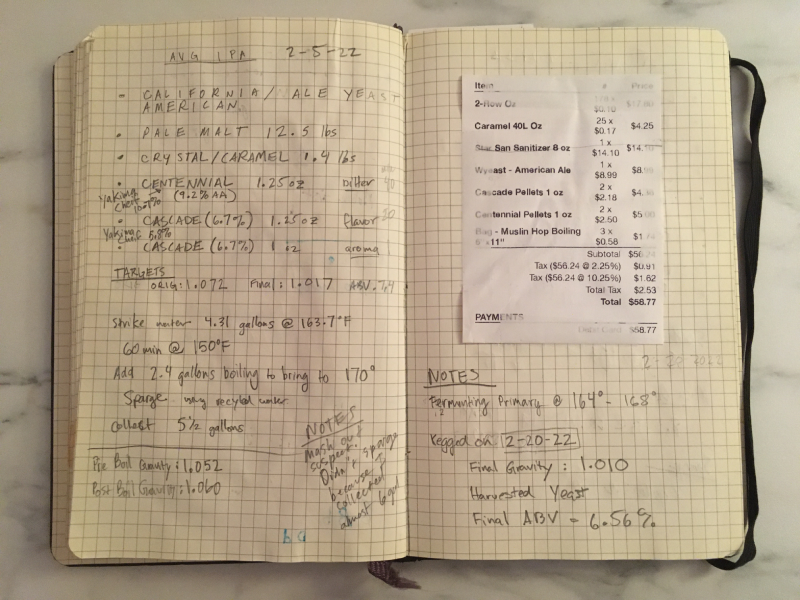 AVG IPA 2-5-22
- CALIFORNIA/ ALE YEAST
AMERICAN
• PALE MALT 12.5 lbs
• CRYSTAL/CARAMEL 1.4 lbs
• CENTENNIAL 1.25 oz bitter 40
(9.2% AA)
Yaking
Chief 10.1%
• CASCADE (6.7%) 1.25 oz flavor 20
Yaking
Chief 5.8%
• CASCADE (6.7%) 1 oz aroma
TARGETS
ORIG: 1.072 Final: 1.017 ABV- 7.4
Strike water 4.31 gallons @ 163.7°F
60 min @ 150°F
Add 2.4 gallons boiling to bring to 170°
Sparge recycled water
Collect 5 1/2 gallons
Pre Boil Gravity: 1.052
Post Boil Gravity: 1.060
NOTES
mash out
Didn't sparge
because I
collected
almost 6 gal
Item # Price
2-Row Oz $0.10
Caramel 40L Oz 25 x $0.17 $4.25
Star San Sanitizer 8 oz 1 x $14.10
Wyeast - American Ale 1 x $8.99
Cascade Pellets 1 oz 2 x $2.18
Centennial Pellets 1 oz 2 x $2.50
Bag - Muslin Hop Boiling 3 x $0.58
x11"
Subtotal
Tax ($56.24 @ 2.25%) $0.91
Tax ($56.24 @ 10.25%) $1.62
Total Tax $2.53
Total $58.77
PAYMENTS
Debit Card $58.77
2-20-2022
NOTES
Fermenting Primary @ 164° - 168°
Kegged on 2-20-22
Final Gravity: 1.010
Harvested Yeast
Final ABV = 6.56%